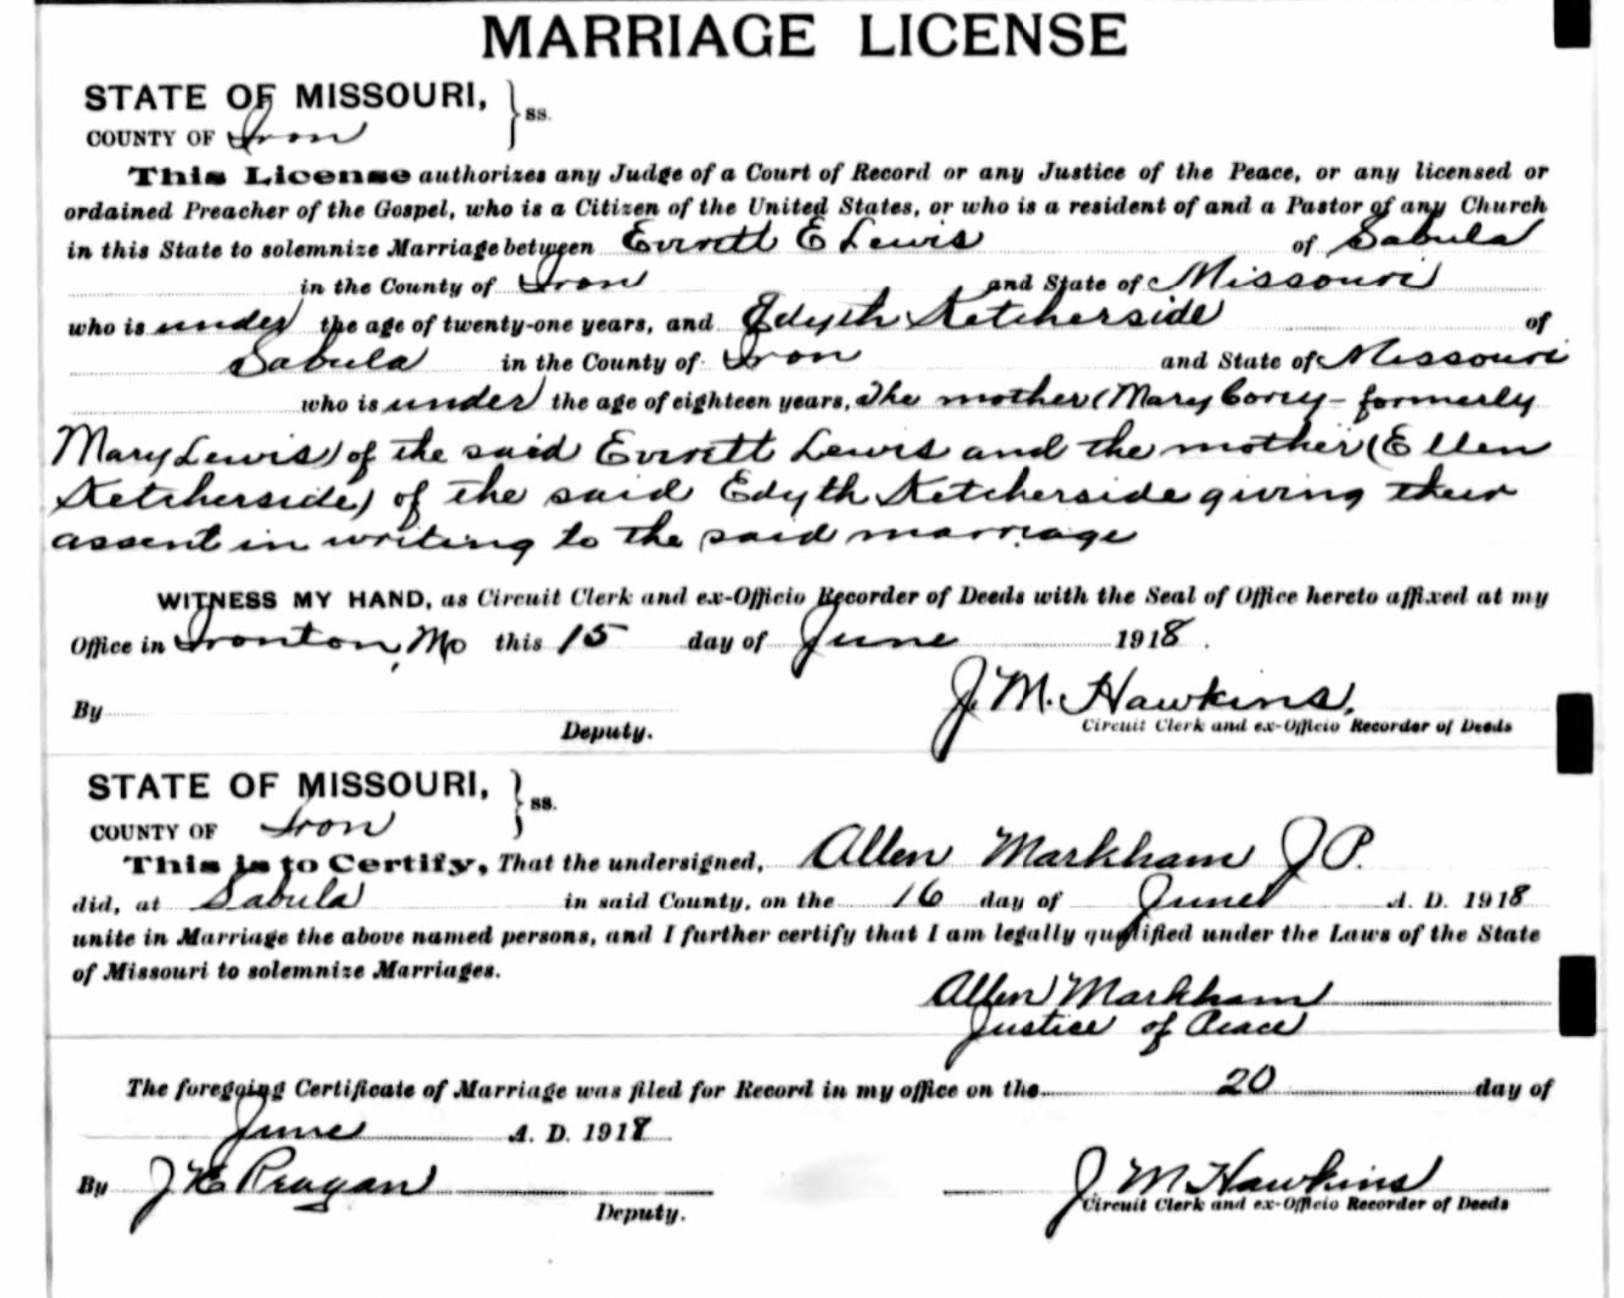 MARRIAGE LICENSE
STATE OF MISSOURI, } ss.
COUNTY OF Iron
This License authorizes any Judge of a Court of Record or any Justice of the Peace, or any licensed or
ordained Preacher of the Gospel, who is a Citizen of the United States, or who is a resident of and a Pastor of any Church
in this State to solemnize Marriage between Everett E Lewis of Sabula
in the County of Iron and State of Missouri
who is under the age of twenty-one years, and Edyth Ketcherside of
Sabula in the County of Iron and State of Missouri
who is under the age of eighteen years, The mother (Mary Corey - formerly
Mary Lewis) of the said Everett Lewis and the mother (Ellen
Ketcherside) of the said Edyth Ketcherside giving their
assent in writing to the said marriage
WITNESS MY HAND, as Circuit Clerk and ex-Officio Recorder of Deeds with the Seal of Office hereto affixed at my
Office in Ironton, Mo this 15 day of June 1918.
J. M. Hawkins,
By Deputy. Circuit Clerk and ex-Officio Recorder of Deeds
STATE OF MISSOURI, } ss.
COUNTY OF Iron
This is to Certify, That the undersigned, Allen Markham J P.
did, at Sabula in said County, on the 16 day of June A. D. 1918
unite in Marriage the above named persons, and I further certify that I am legally qualified under the Laws of the State
of Missouri to solemnize Marriages.
Allen Markham
Justice of Peace
The foregoing Certificate of Marriage was filed for Record in my office on the 20 day of
June A. D. 1918
By J K Reagan J M Hawkins
Deputy. Circuit Clerk and ex-Officio Recorder of Deeds